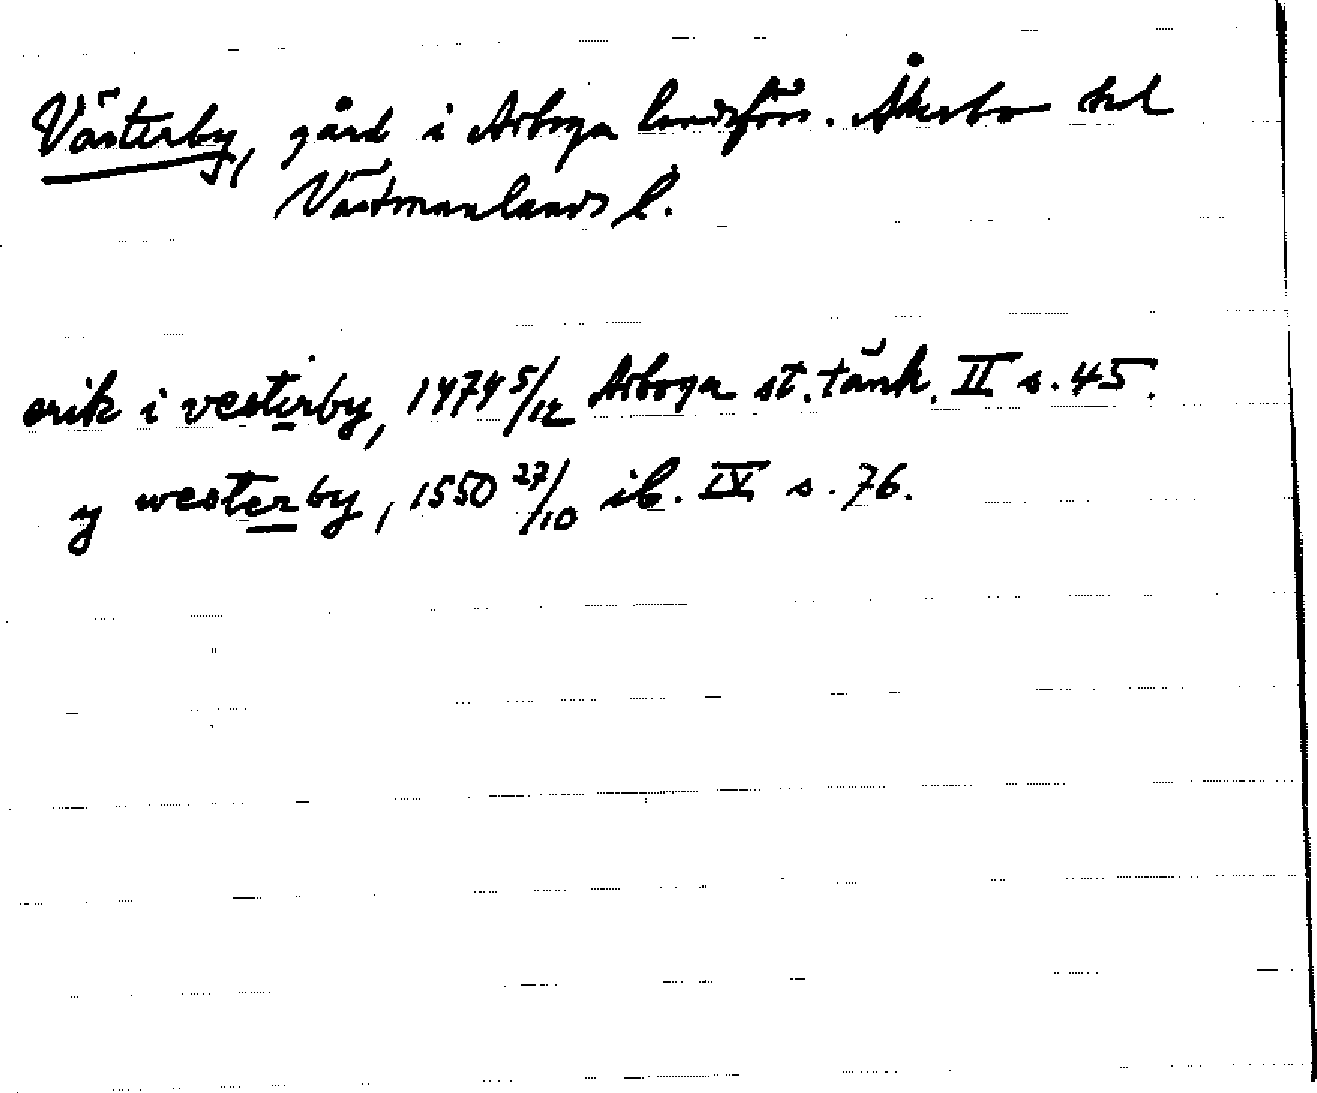 Västerby, gård i Arboga landsförs. Åkerbo hd
Västmanlands l.
erik i vesterby, 1474 5/12 Arboga st. tänk. II s. 45.
y westerby, 1550 27/10 ib. IV s. 76.